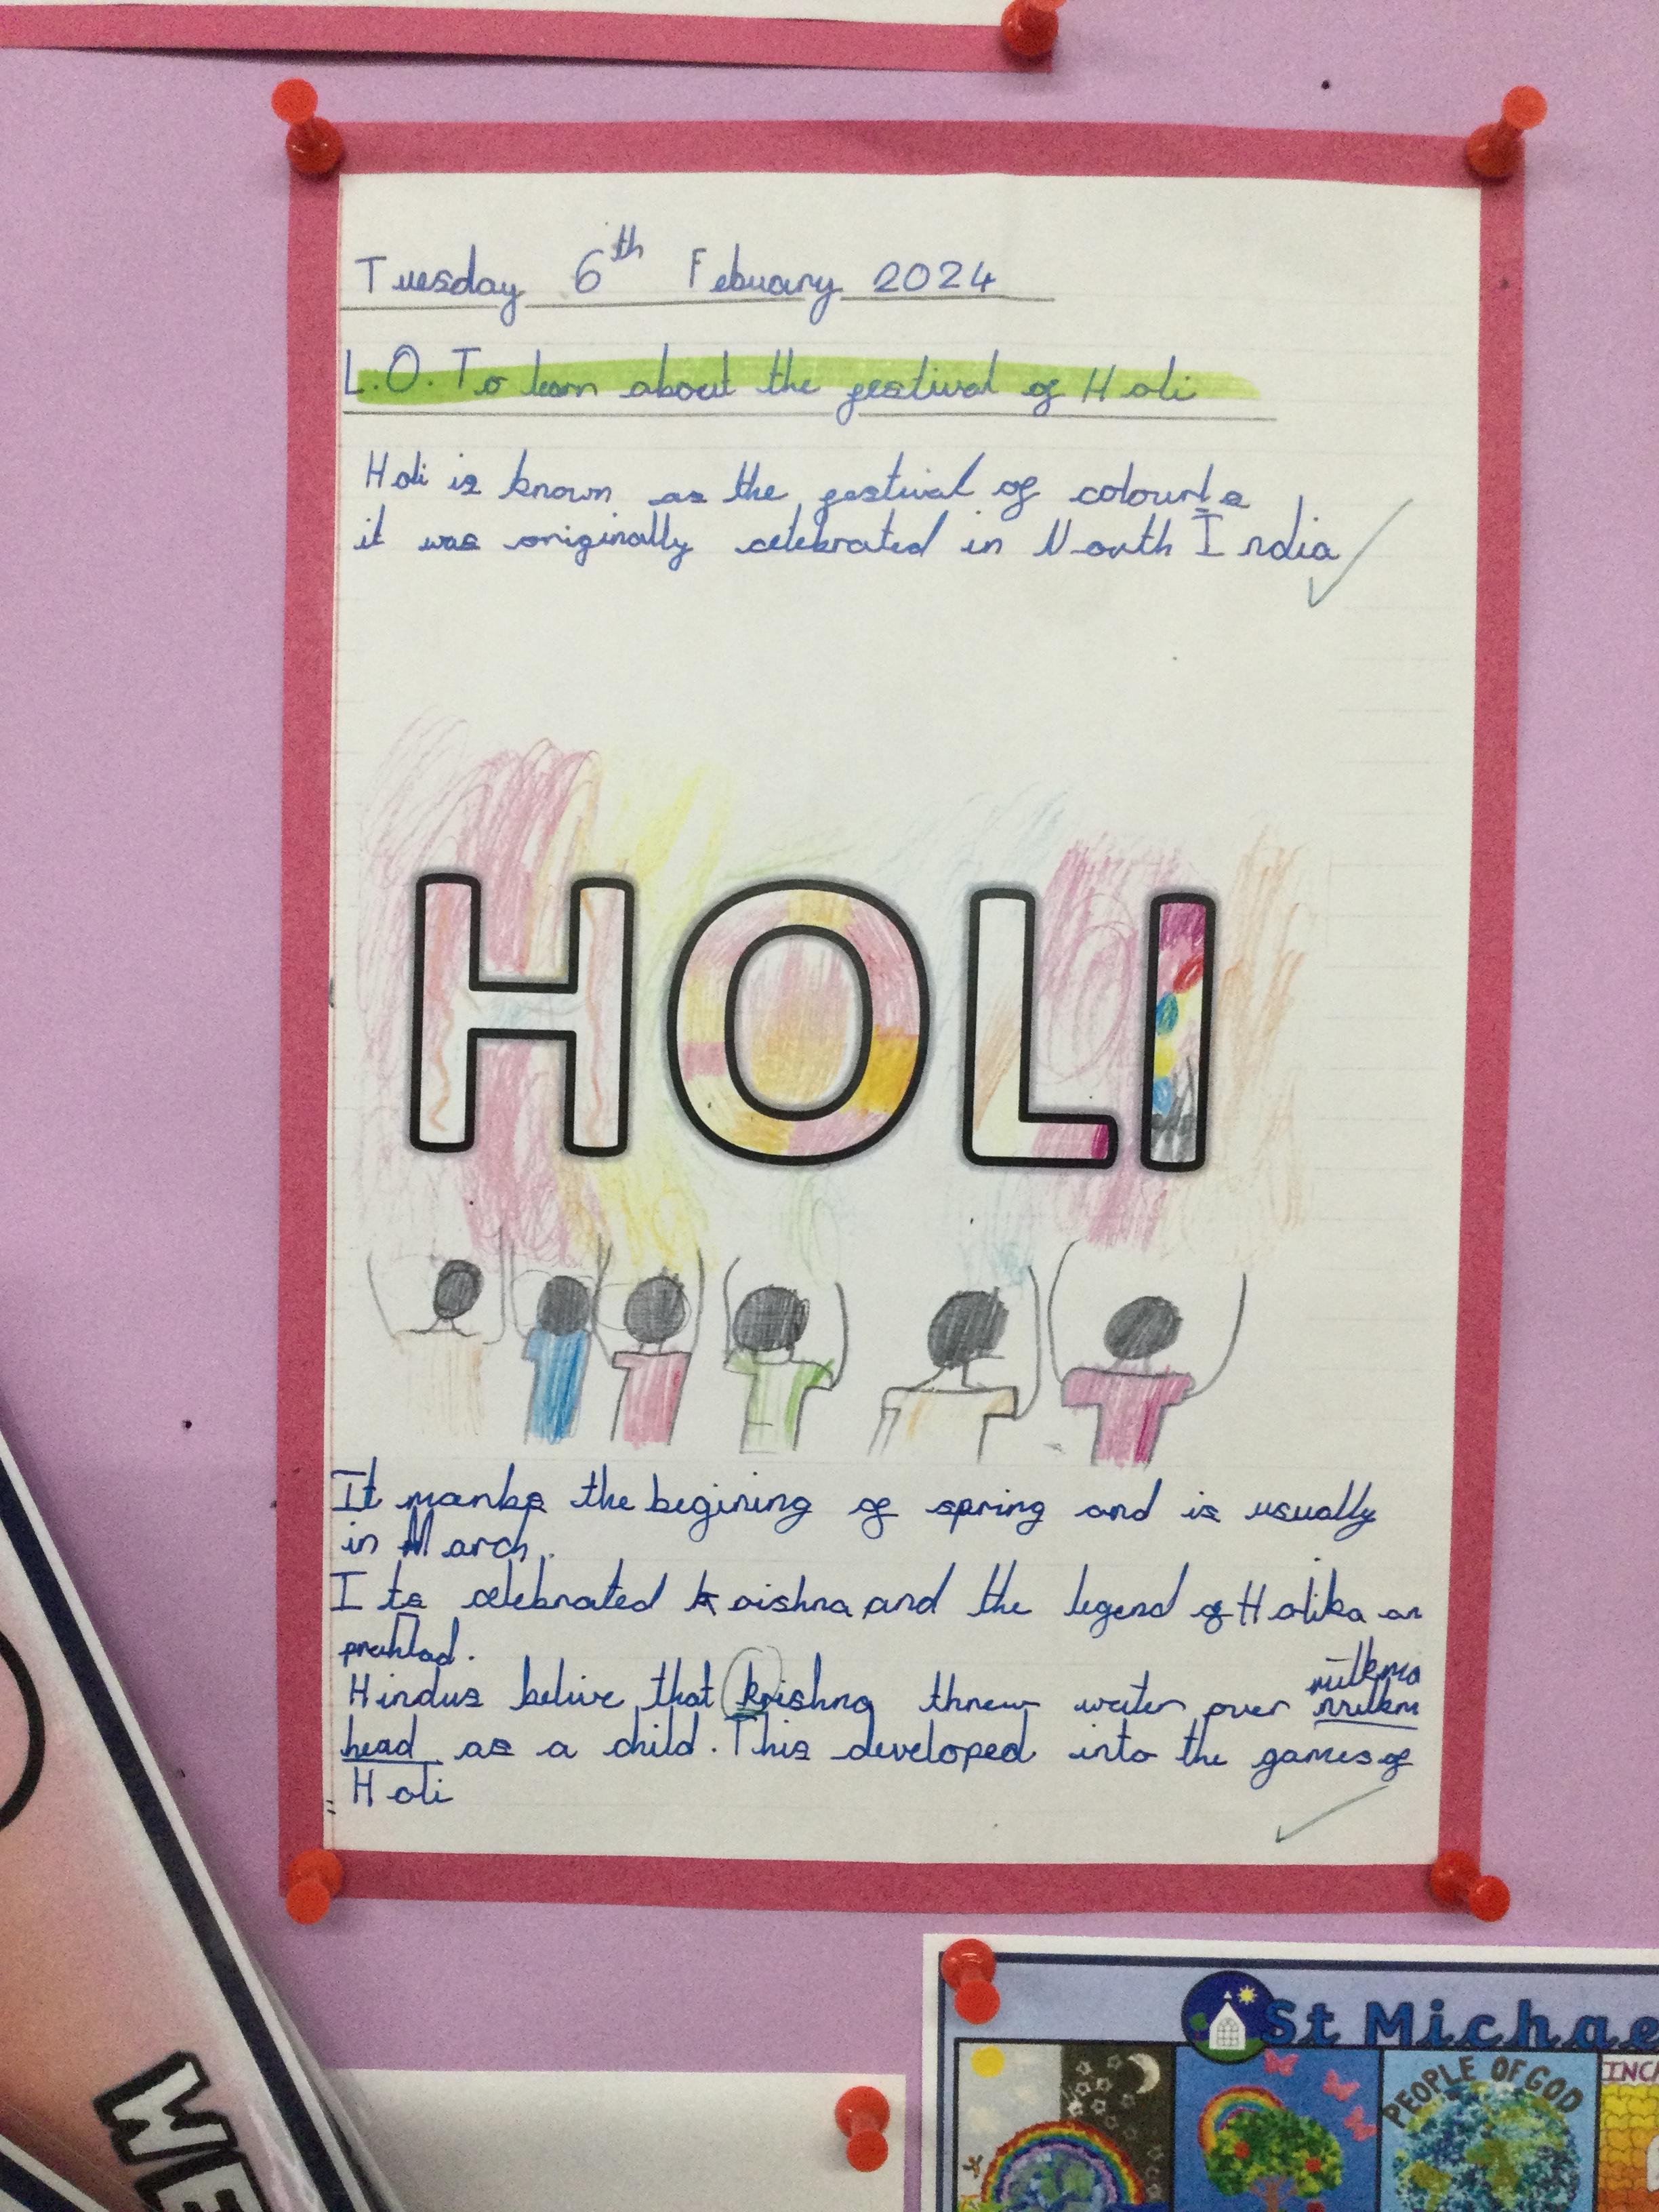 Tuesday 6th Febuary 2024
L.O. To learn about the festival of Holi
Holi is known as the festival of colours
it was originally celebrated in North India
HOLI
It marks the begining of spring and is usually
in March.
Its celebrated Krishna and the legend of Holika an
prahlad.
Hindus belive that krishna threw water over milkma
head as a child. This developed into the games of
Holi
WE
St Michae
PEOPLE OF GOD
INCA